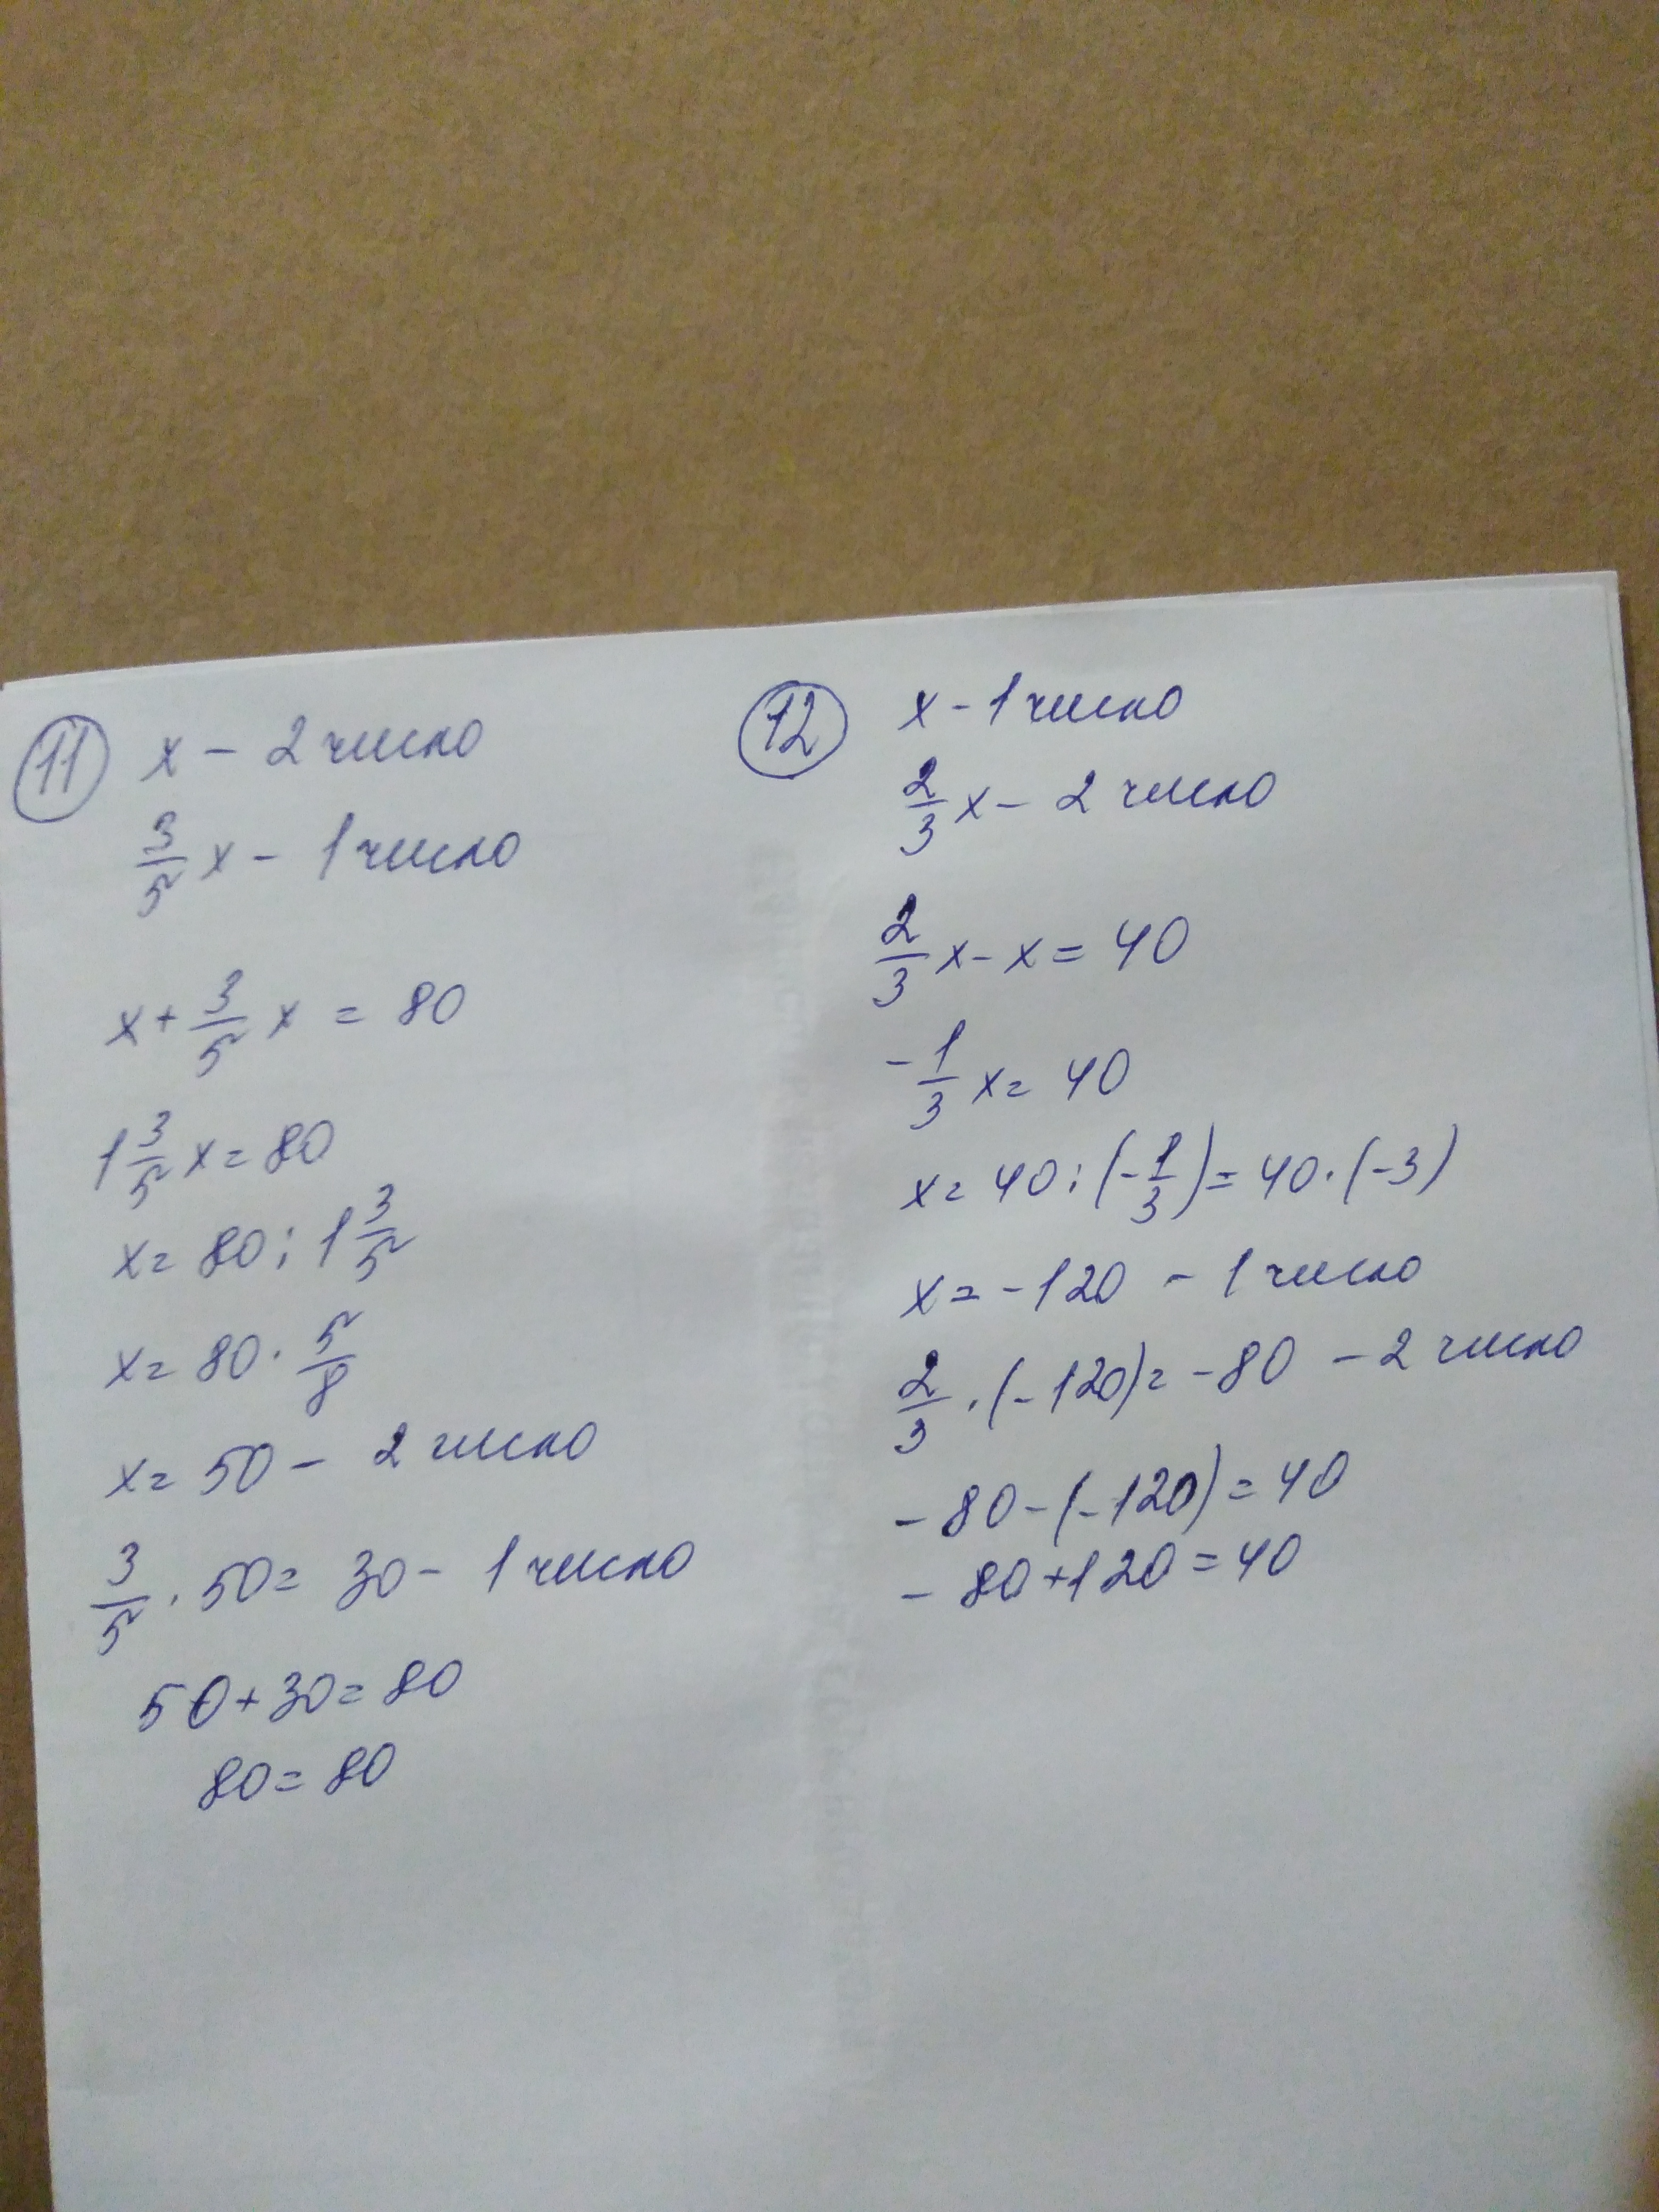 11
x - 2 число
3/5 x - 1 число
x + 3/5 x = 80
1 3/5 x = 80
x = 80 : 1 3/5
x = 80 · 5/8
x = 50 - 2 число
3/5 · 50 = 30 - 1 число
50 + 30 = 80
80 = 80
12
x - 1 число
2/3 x - 2 число
2/3 x - x = 40
- 1/3 x = 40
x = 40 : (- 1/3) = 40 · (-3)
x = -120 - 1 число
2/3 · (-120) = -80 - 2 число
- 80 - (-120) = 40
- 80 + 120 = 40